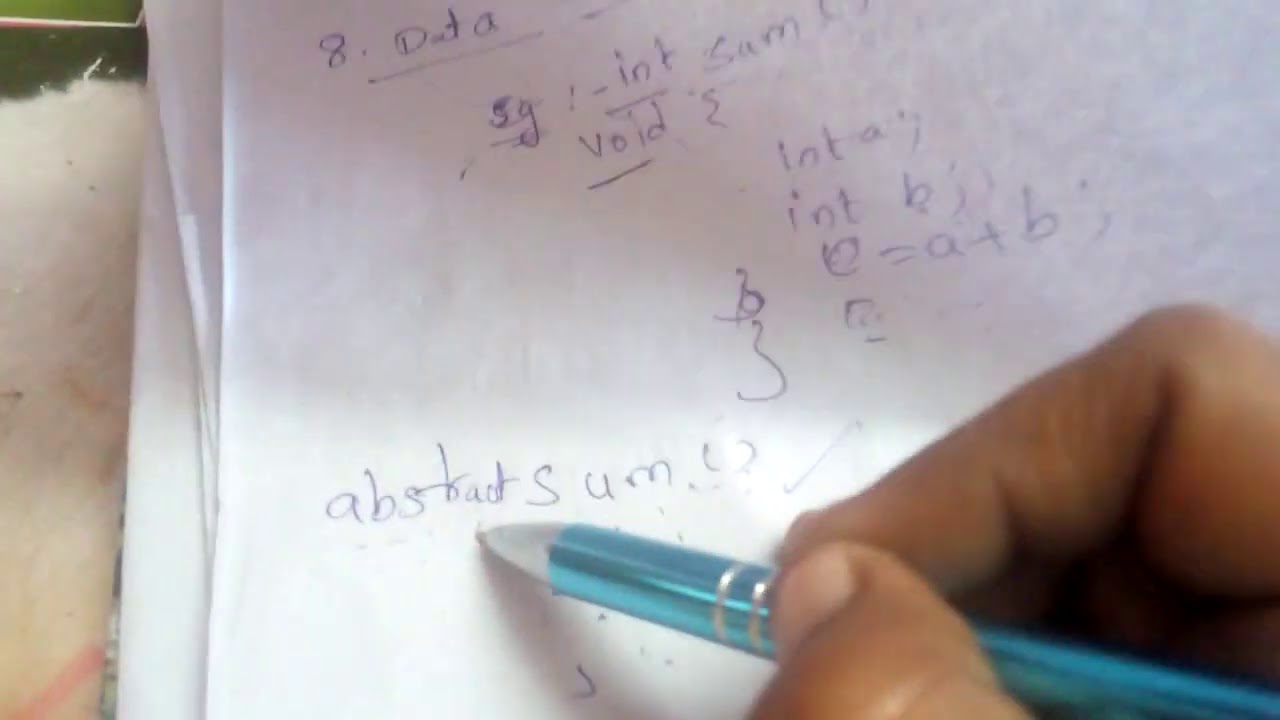 8. Data
Eg :- int sum ()
void {
int a;
int b;
c = a + b;
}
}
abstract sum ()